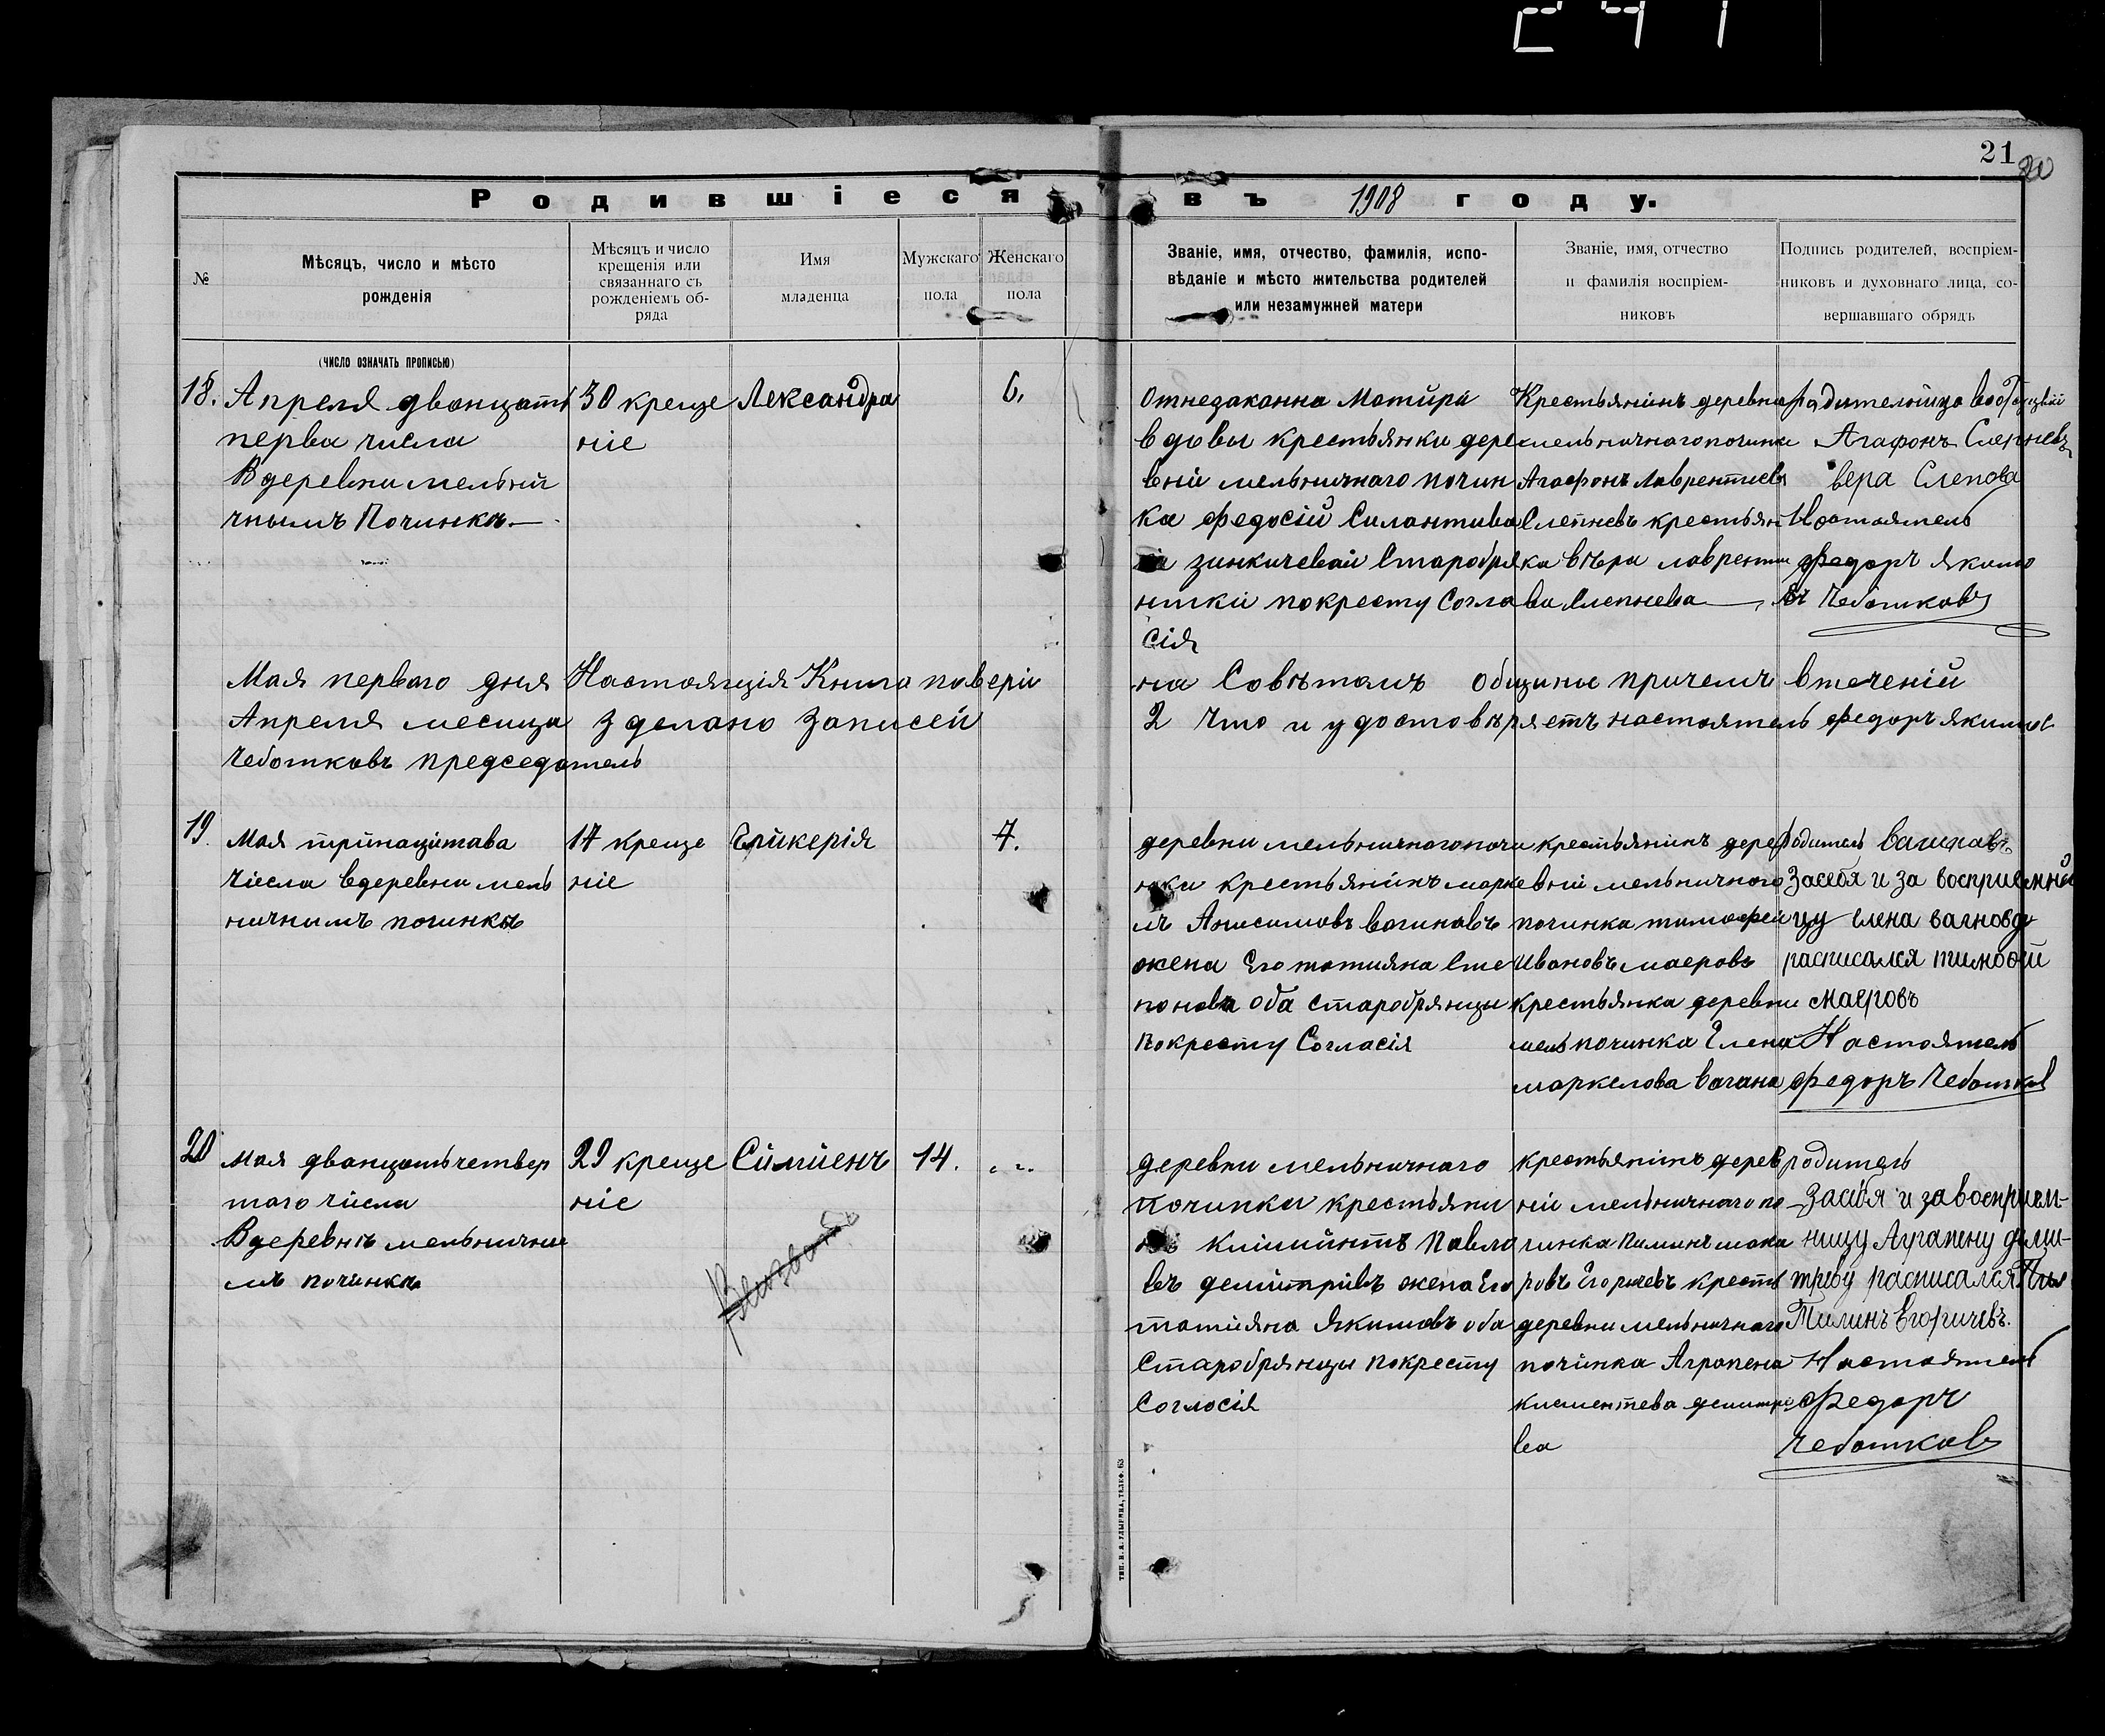 241
21
20
Родившіеся въ 1908 году.
№
Мѣсяцъ, число и мѣсто
рожденія
Мѣсяцъ и число
крещенія или
связаннаго съ
рожденіемъ об-
ряда
Имя
младенца
Мужскаго
пола
Женскаго
пола
Званіе, имя, отчество, фамилія, испо-
вѣданіе и мѣсто жительства родителей
или незамужней матери
Званіе, имя, отчество
и фамилія воспріем-
никовъ
Подпись родителей, воспріем-
никовъ и духовнаго лица, со-
вершавшаго обрядъ
(число означать прописью)
18.
Апреля дванцать
перва числа
В деревни мельни
чнымъ Починкѣ
30 креще
ніе
Лександра
6.
отнезаканна Матйри
вдовы крестьянки дере
вни мельничнаго почин
ка федосіи Силантива
зинкичевай Старобря
нтки покресту Согла
сія
Крестьянинъ деревни
мельничнагопочинка
Агафонъ Лаврентиевъ
Слепневъ крестьян
ка вѣра лавренти
ва Слепнева
Агафонъ Слепневъ
вера Слепова
Настоятель
федоръ якимо
въ Чеботковъ
Мая первого дня Настоящія Книга повери
на Совѣтамъ общины причемъ втеченій
Апреля месица зделано записей
2 Что и удостовѣряетъ настоятель федоръ якимов
Чеботковъ председатель
19.
Мая трйнацитава
Числа вдеревни мель
ничнымъ починкѣ
17 креще
ніе
Глйкерія
7.
деревни мельничногопочи
нки крестьянинъ марке
лъ Анисимовъ вагинавъ
жена Его татияна Сте
понова оба старобрянцы
покресту Согласія
крестьянинъ дере
вній мельничного
починка тимофей
Ивановъ маеровъ
крестьянка деревни
мель починка Елена
маркелова вагана
Родитель
Засебя и за восприемни
цу елена
расписался тимофей
маеровъ
Настоятель
федоръ Чеботков
20
Мая дванцать четвер
таго числа
В деревнѣ мельнични
мъ починкѣ
29 креще
ніе
Сймйенъ
14.
деревни мельничнаго
починка крестьяни
нъ клймйнтъ Павло
въ демйтрйвъ жена Его
татияна Якимовъ оба
Старобрянцы покресту
Соглосія
крестьянинъ дерев
ній мельничнаго по
чинка Пименъ мака
ровъ Егоричевъ крестъ
деревни мельничнаго
починка Аграпена
клементева демитри
ва
родитель
Засебя и за восприем-
ницу Аграпену дими-
треву расписался
Пименъ Егоричевъ.
Настоятель
Федоръ
Чеботковъ